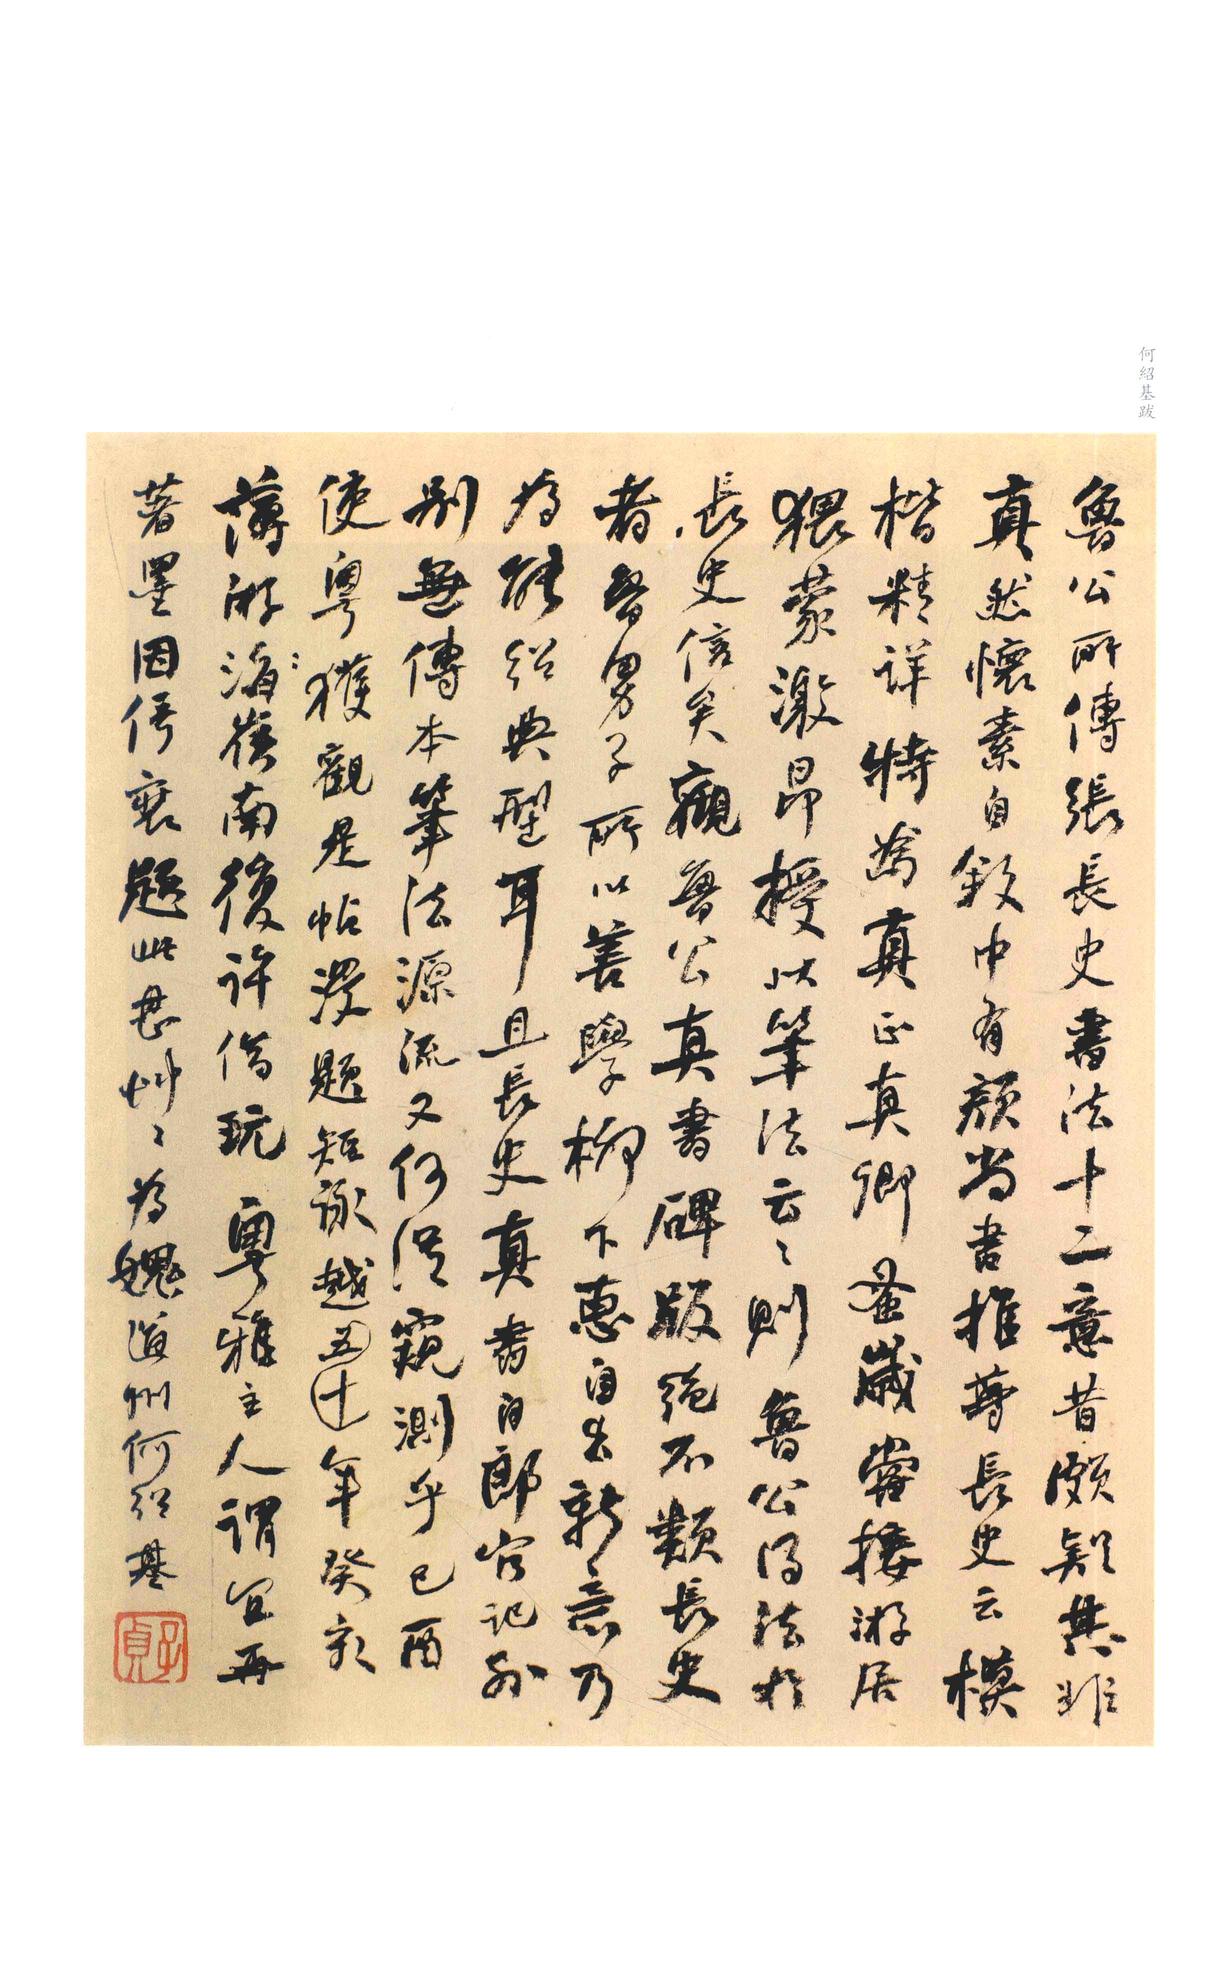 何紹基跋
魯公所傳張長史書法十二意昔頗疑其非
真然懷素自敘中有顏尚書推尊長史云模
楷精詳特為真正真卿蚤歲嘗接游居
猥蒙激昂授以筆法云〻則魯公得法於
長史信矣觀魯公真書碑版絕不類長史
者魯男子所以善學柳下惠自出新意乃
為能紹典型耳且長史真書自郎官記外
別無傳本筆法源流又何從窺測乎己酉
使粵獲觀是帖漫題短詠越十五年癸亥
薄游海嶺南復許借玩粵雅主人謂宜再
著墨因倚裝題此甚艸〻為媿道州何紹基
子貞